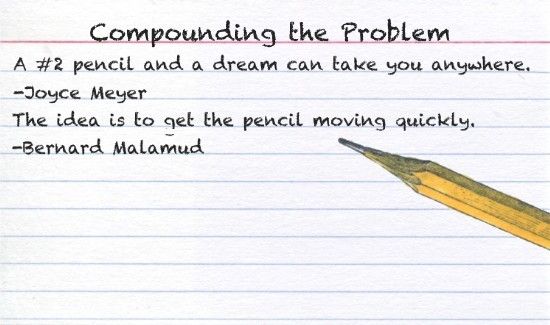 Compounding the Problem
A #2 pencil and a dream can take you anywhere.
-Joyce Meyer
The idea is to get the pencil moving quickly.
-Bernard Malamud